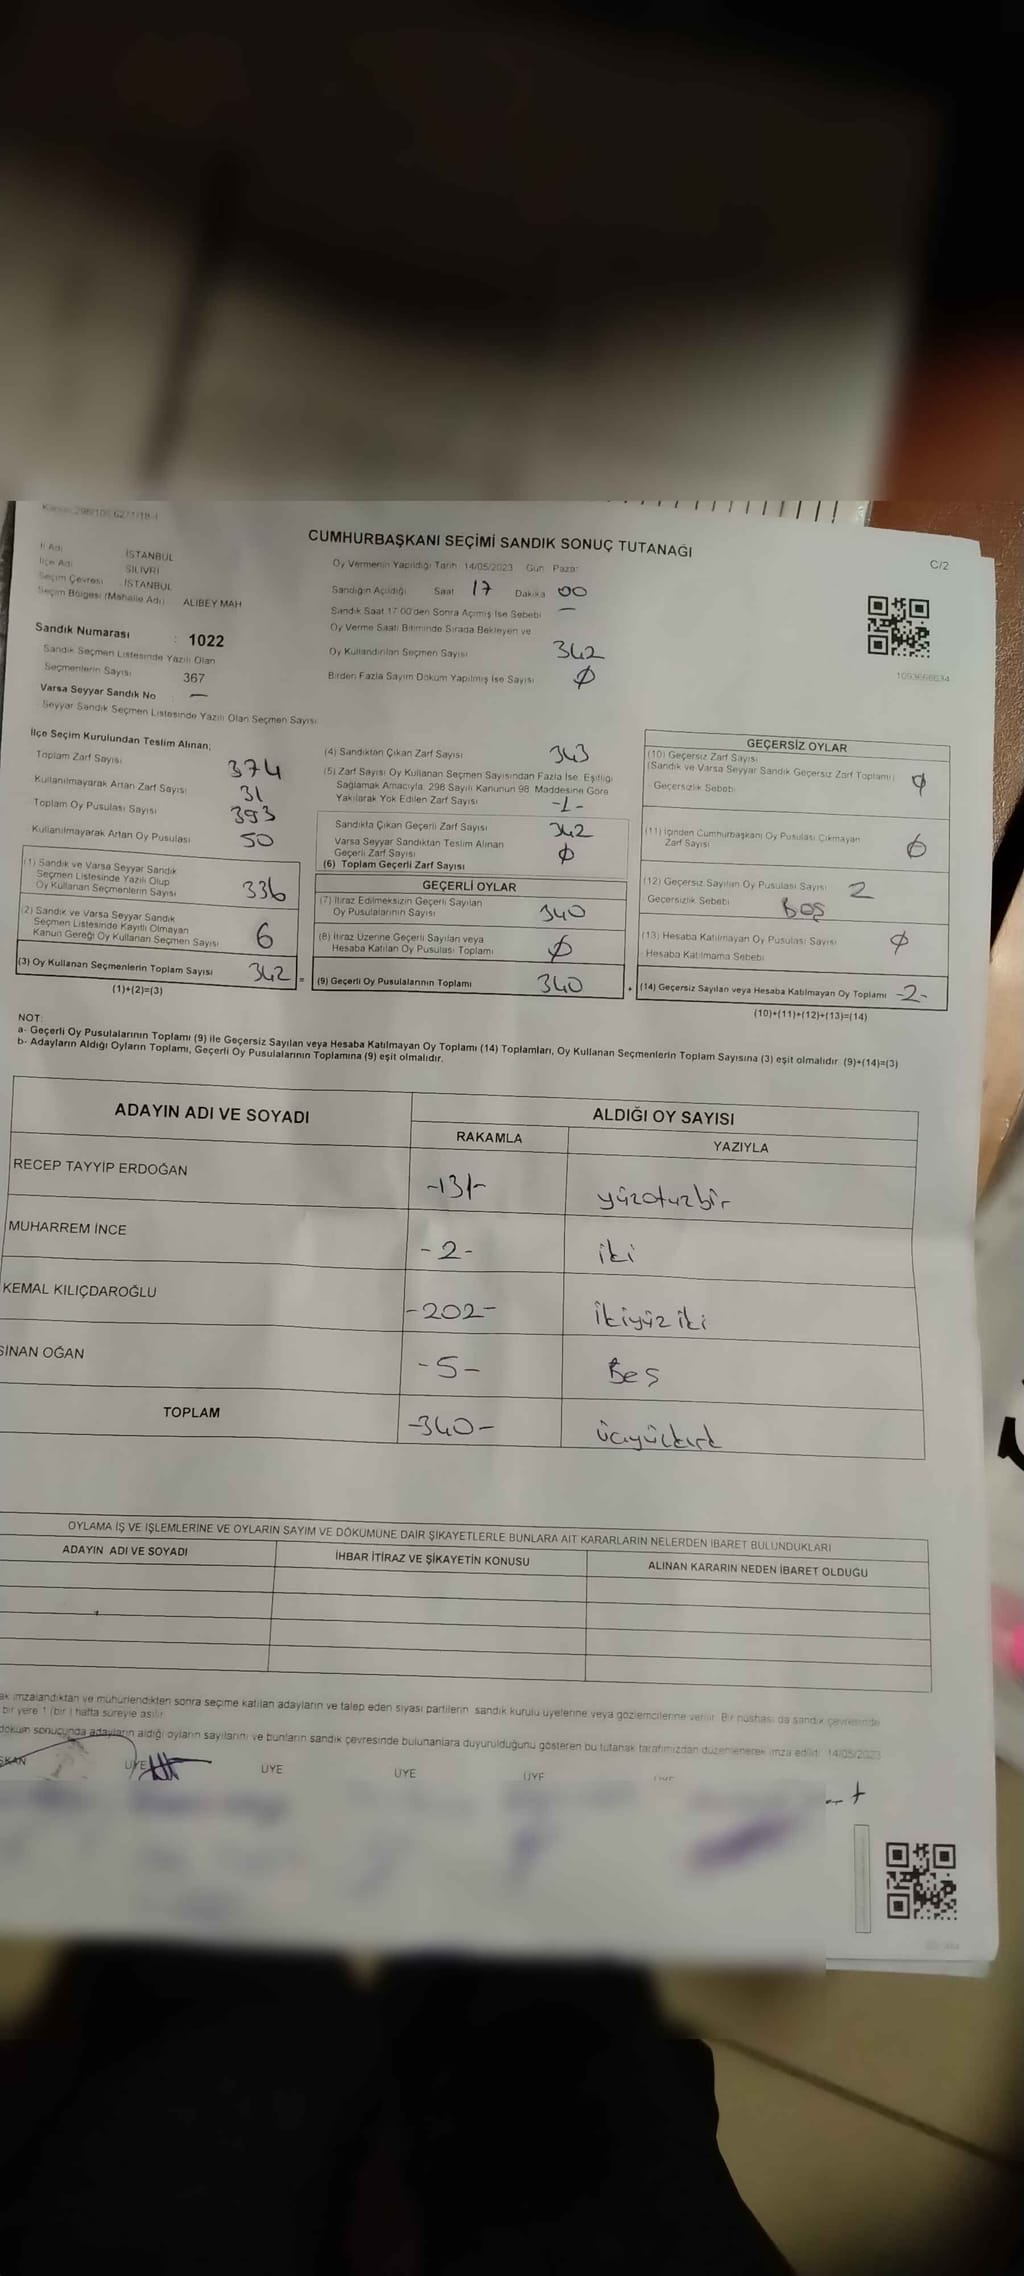 CUMHURBAŞKANI SEÇİMİ SANDIK SONUÇ TUTANAĞI
C/2
İl Adı İSTANBUL
İlçe Adı SİLİVRİ
Seçim Çevresi : İSTANBUL
Seçim Bölgesi (Mahalle Adı) ALİBEY MAH
Sandık Numarası : 1022
Sandık Seçmen Listesinde Yazılı Olan
Seçmenlerin Sayısı 367
Varsa Seyyar Sandık No —
Seyyar Sandık Seçmen Listesinde Yazılı Olan Seçmen Sayısı
Oy Vermenin Yapıldığı Tarih 14/05/2023 Gün Pazar
Sandığın Açıldığı Saat 17 Dakika 00
Sandık Saat 17:00'den Sonra Açılmış İse Sebebi —
Oy Verme Saati Bitiminde Sırada Bekleyen ve
Oy Kullandırılan Seçmen Sayısı 342
Birden Fazla Sayım Döküm Yapılmış İse Sayısı Ø
1093666634
İlçe Seçim Kurulundan Teslim Alınan;
Toplam Zarf Sayısı 374
Kullanılmayarak Artan Zarf Sayısı 31
Toplam Oy Pusulası Sayısı 393
Kullanılmayarak Artan Oy Pusulası 50
(1) Sandık ve Varsa Seyyar Sandık
Seçmen Listesinde Yazılı Olup
Oy Kullanan Seçmenlerin Sayısı 336
(2) Sandık ve Varsa Seyyar Sandık
Seçmen Listesinde Kayıtlı Olmayan
Kanun Gereği Oy Kullanan Seçmen Sayısı 6
(3) Oy Kullanan Seçmenlerin Toplam Sayısı 342 =
(1)+(2)=(3)
(4) Sandıktan Çıkan Zarf Sayısı 343
(5) Zarf Sayısı Oy Kullanan Seçmen Sayısından Fazla İse, Eşitliği
Sağlamak Amacıyla, 298 Sayılı Kanunun 98. Maddesine Göre
Yakılarak Yok Edilen Zarf Sayısı -1-
Sandıkta Çıkan Geçerli Zarf Sayısı 342
Varsa Seyyar Sandıktan Teslim Alınan
Geçerli Zarf Sayısı Ø
(6) Toplam Geçerli Zarf Sayısı
GEÇERLİ OYLAR
(7) İtiraz Edilmeksizin Geçerli Sayılan
Oy Pusulalarının Sayısı 340
(8) İtiraz Üzerine Geçerli Sayılan veya
Hesaba Katılan Oy Pusulası Toplamı Ø
(9) Geçerli Oy Pusulalarının Toplamı 340 +
GEÇERSİZ OYLAR
(10) Geçersiz Zarf Sayısı
(Sandık ve Varsa Seyyar Sandık Geçersiz Zarf Toplamı) Ø
Geçersizlik Sebebi
(11) İçinden Cumhurbaşkanı Oy Pusulası Çıkmayan
Zarf Sayısı Ø
(12) Geçersiz Sayılan Oy Pusulası Sayısı 2
Geçersizlik Sebebi Boş
(13) Hesaba Katılmayan Oy Pusulası Sayısı Ø
Hesaba Katılmama Sebebi
(14) Geçersiz Sayılan veya Hesaba Katılmayan Oy Toplamı -2-
(10)+(11)+(12)+(13)=(14)
NOT:
a- Geçerli Oy Pusulalarının Toplamı (9) ile Geçersiz Sayılan veya Hesaba Katılmayan Oy Toplamı (14) Toplamları, Oy Kullanan Seçmenlerin Toplam Sayısına (3) eşit olmalıdır. (9)+(14)=(3)
b- Adayların Aldığı Oyların Toplamı, Geçerli Oy Pusulalarının Toplamına (9) eşit olmalıdır.
ADAYIN ADI VE SOYADI ALDIĞI OY SAYISI
RAKAMLA YAZIYLA
RECEP TAYYİP ERDOĞAN -131- yüzotuzbir
MUHARREM İNCE -2- iki
KEMAL KILIÇDAROĞLU -202- ikiyüziki
SİNAN OĞAN -5- Beş
TOPLAM -340- üçyüzkırk
OYLAMA İŞ VE İŞLEMLERİNE VE OYLARIN SAYIM VE DÖKÜMÜNE DAİR ŞİKAYETLERLE BUNLARA AİT KARARLARIN NELERDEN İBARET BULUNDUKLARI
ADAYIN ADI VE SOYADI İHBAR İTİRAZ VE ŞİKAYETİN KONUSU ALINAN KARARIN NEDEN İBARET OLDUĞU
imzalandıktan ve mühürlendikten sonra seçime katılan adayların ve talep eden siyasi partilerin sandık kurulu üyelerine veya gözlemcilerine verilir. Bir nüshası da sandık çevresinde
bir yere 1 (bir) hafta süreyle asılır.
döküm sonucunda adayların aldığı oyların sayılarını ve bunların sandık çevresinde bulunanlara duyurulduğunu gösteren bu tutanak tarafımızdan düzenlenerek imza edildi. 14/05/2023
ÜYE ÜYE ÜYE ÜYE